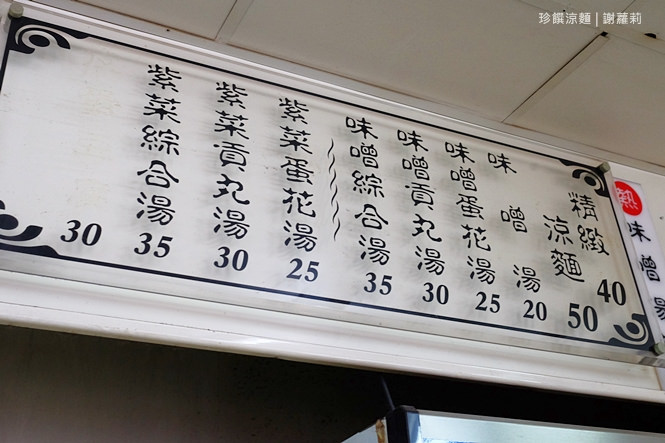 珍饌涼麵 | 謝蘿莉
熱
味噌湯
精緻
涼麵
40
50
味噌湯
20
味噌蛋花湯
25
味噌貢丸湯
30
味噌綜合湯
35
紫菜蛋花湯
25
紫菜貢丸湯
30
紫菜綜合湯
35
30